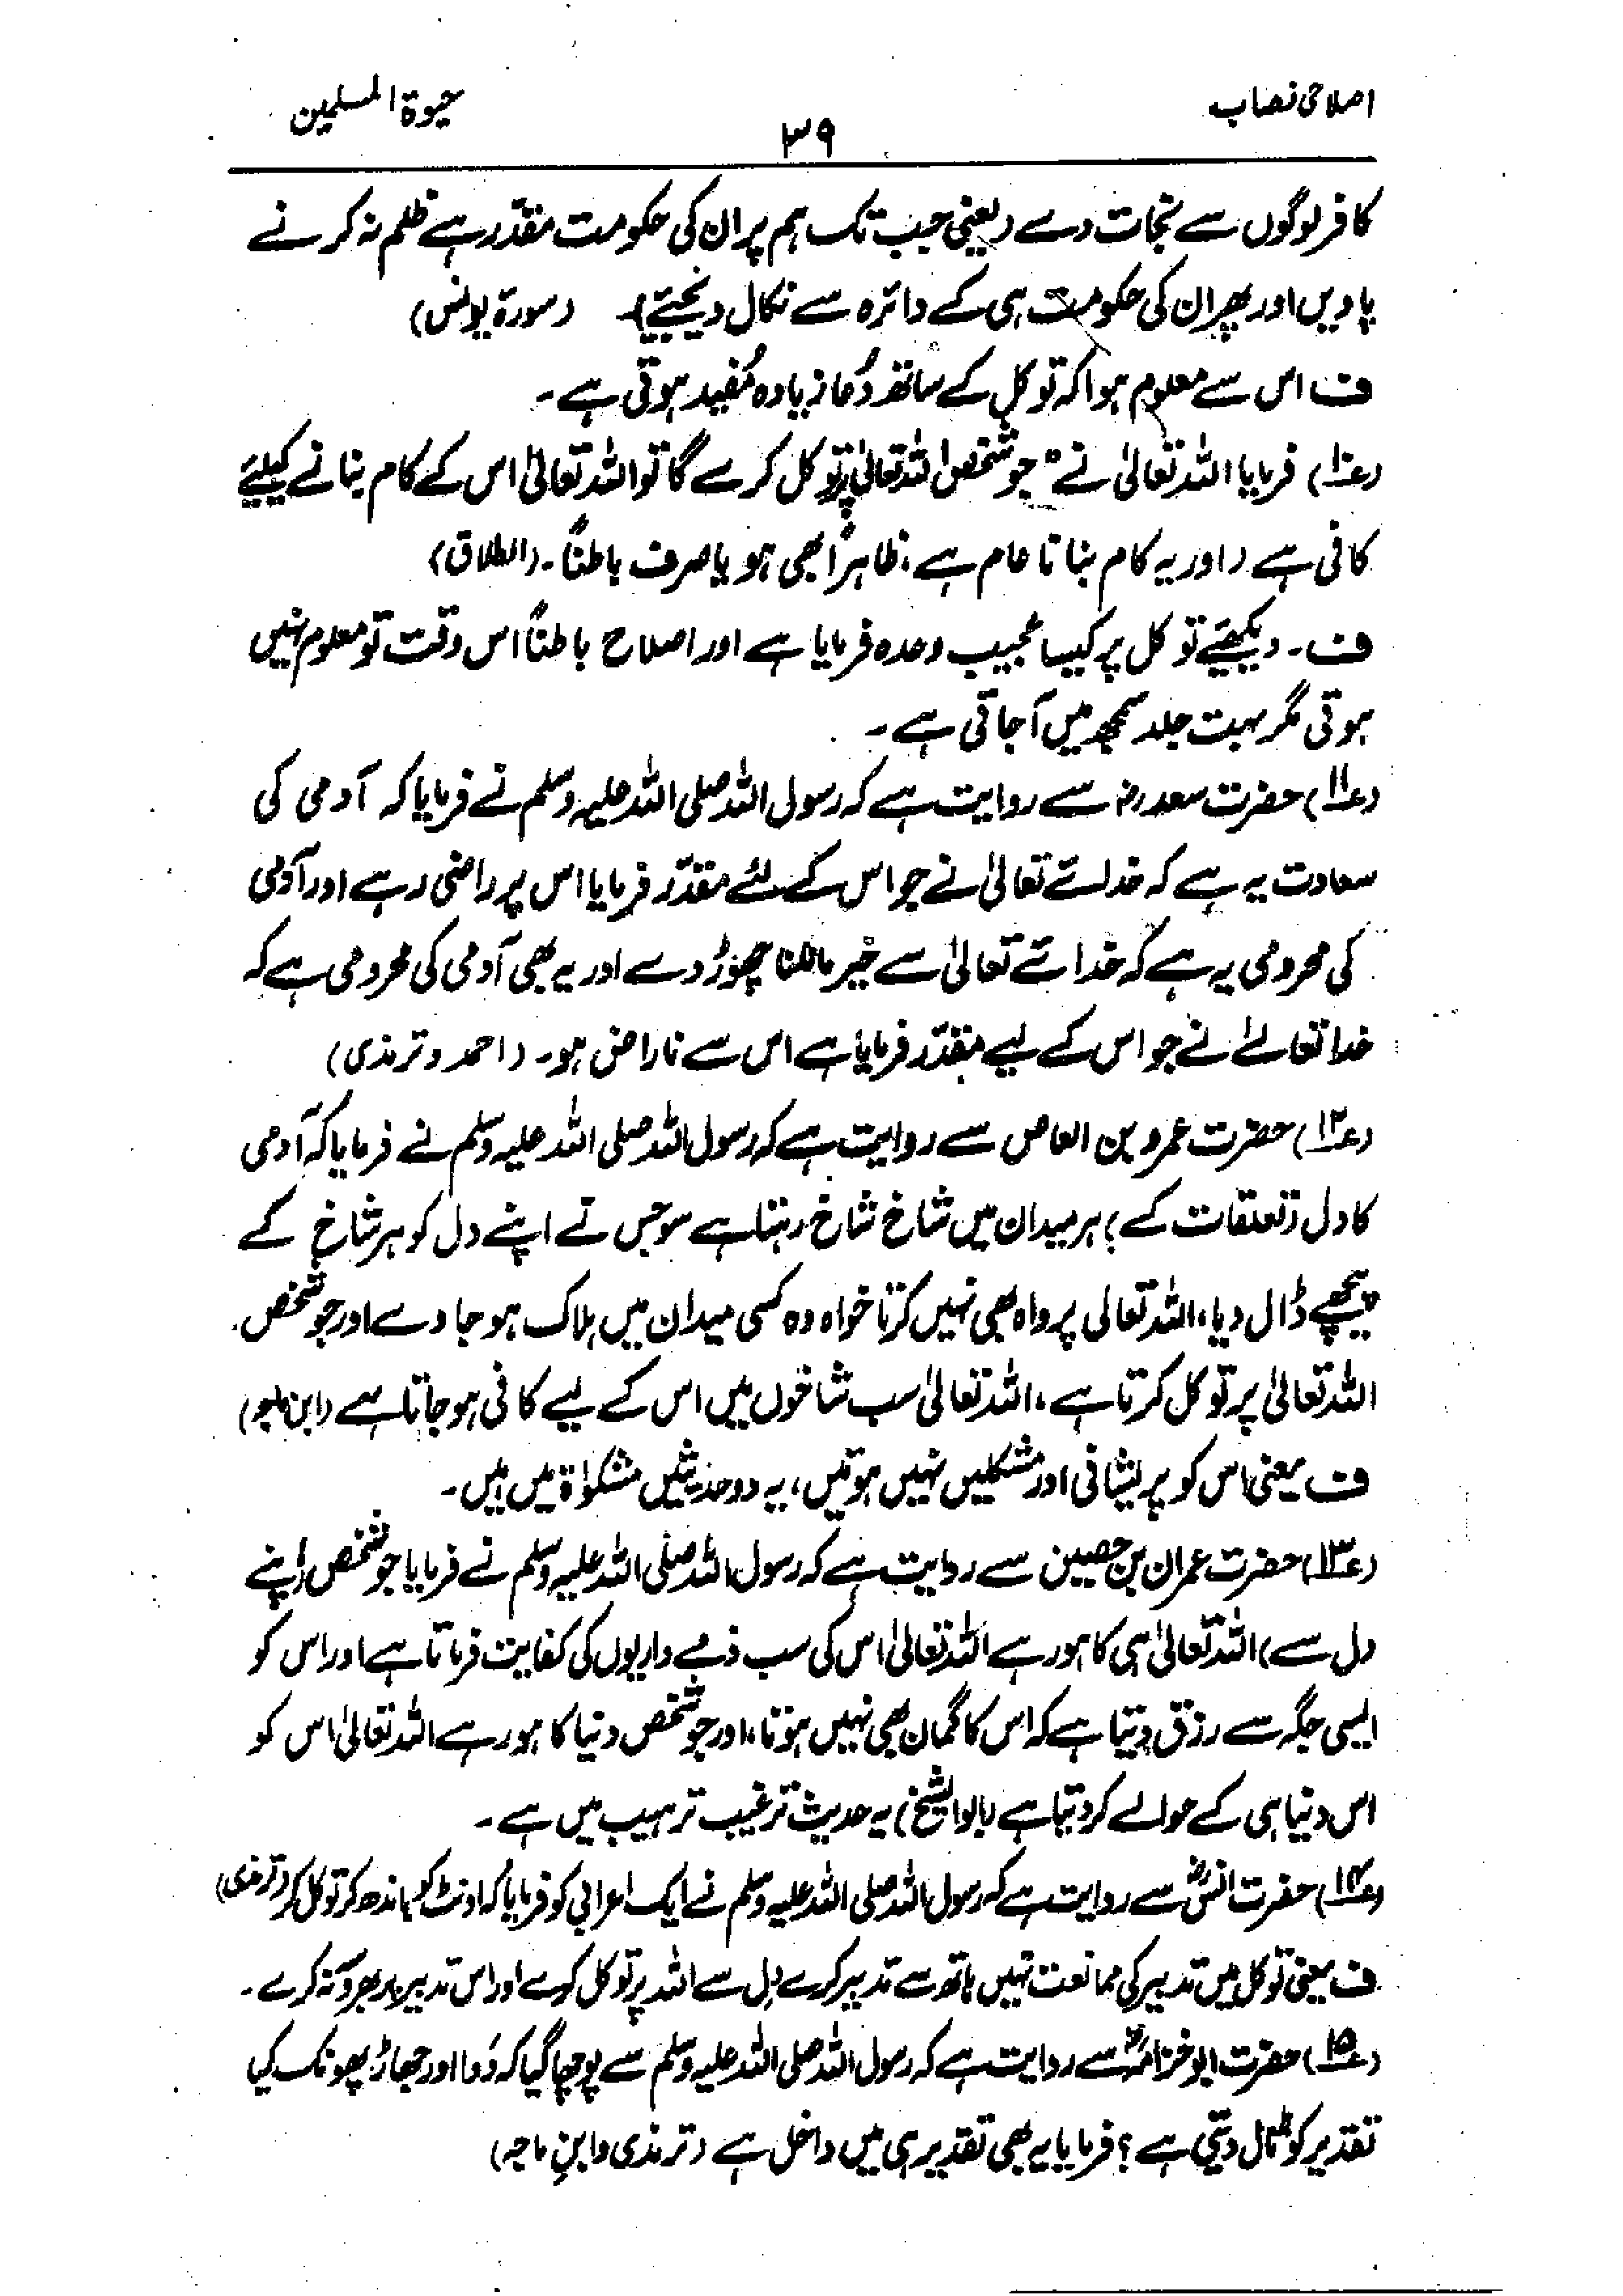 اصلاحی نصاب
حیٰوۃ المسلمین
۳۹
کافر لوگوں سے نجات دے (یعنی جب تک ہم پر ان کی حکومت مقدّر ہے ظلم نہ کرنے
پاویں اور پھر ان کی حکومت ہی کے دائرہ سے نکال دیجئے)۔ (سورۃ یونس)
ف اس سے معلوم ہوا کہ توکل کے ساتھ دُعا زیادہ مُفید ہوتی ہے۔
(ع۱۰) فرمایا اللہ تعالیٰ نے "جو شخص اللہ تعالیٰ پر توکل کرے گا تو اللہ تعالیٰ اس کے کام بنانے کیلئے
کافی ہے (اور یہ کام بنانا عام ہے، ظاہراً بھی ہو یا صرف باطناً۔ (الطلاق)
ف۔ دیکھئے توکل پر کیسا عجیب وعدہ فرمایا ہے اور اصلاح باطناً اس وقت تو معلوم نہیں
ہوتی مگر بہت جلد سمجھ میں آجاتی ہے۔
(ع۱۱) حضرت سعدرضؓ سے روایت ہے کہ رسول اللہ صلی اللہ علیہ وسلم نے فرمایا کہ آدمی کی
سعادت یہ ہے کہ خدائے تعالیٰ نے جو اس کے لئے مقدّر فرمایا اس پر راضی رہے اور آدمی
کی محرومی یہ ہے کہ خدائے تعالیٰ سے خیر مانگنا چھوڑ دے اور یہ بھی آدمی کی محرومی ہے کہ
خدا تعالےٰ نے جو اس کے لیے مقدّر فرمایا ہے اس سے ناراض ہو۔ (احمد و ترمذی)
(ع۱۲) حضرت عمرو بن العاص سے روایت ہے کہ رسول اللہ صلی اللہ علیہ وسلم نے فرمایا کہ آدمی
کا دل (تعلقات کے) ہر میدان میں شاخ شاخ رہتا ہے سو جس نے اپنے دل کو ہر شاخ کے
پیچھے ڈال دیا، اللہ تعالی پرواہ بھی نہیں کرتا خواہ وہ کسی میدان میں ہلاک ہو جاوے اور جو شخص
اللہ تعالیٰ پر توکل کرتا ہے، اللہ تعالیٰ سب شاخوں میں اس کے لیے کافی ہو جاتا ہے (ابن ماجہ)
ف یعنی اس کو پریشانی اور مشکلیں نہیں ہوتیں، یہ دو حدیثیں مشکوٰۃ میں ہیں۔
(ع۱۳) حضرت عمران بن حصین سے روایت ہے کہ رسول اللہ صلی اللہ علیہ وسلم نے فرمایا جو شخص (اپنے
دل سے) اللہ تعالیٰ ہی کا ہو رہے اللہ تعالیٰ اس کی سب ذمے داریوں کی کفایت فرماتا ہے اور اس کو
ایسی جگہ سے رزق دیتا ہے کہ اس کا گمان بھی نہیں ہوتا، اور جو شخص دنیا کا ہو رہے اللہ تعالیٰ اس کو
اس دنیا ہی کے حوالے کر دیتا ہے (ابوالشیخ) یہ حدیث ترغیب ترہیب میں ہے۔
(ع۱۴) حضرت انسؓ سے روایت ہے کہ رسول اللہ صلی اللہ علیہ وسلم نے ایک اعرابی کو فرمایا کہ اونٹ کو باندھ کر توکل کر (ترمذی)
ف یعنی توکل میں تدبیر کی ممانعت نہیں ہاتھ سے تدبیر کرے دل سے اللہ پر توکل کرے اور اس تدبیر پر بھروسہ نہ کرے۔
(ع۱۵) حضرت ابوخزامہؓ سے روایت ہے کہ رسول اللہ صلی اللہ علیہ وسلم سے پوچھا گیا کہ دَوا اور جھاڑ پھونک کیا
تقدیر کو ٹال دیتی ہے؟ فرمایا یہ بھی تقدیر ہی میں داخل ہے (ترمذی و ابنِ ماجہ)